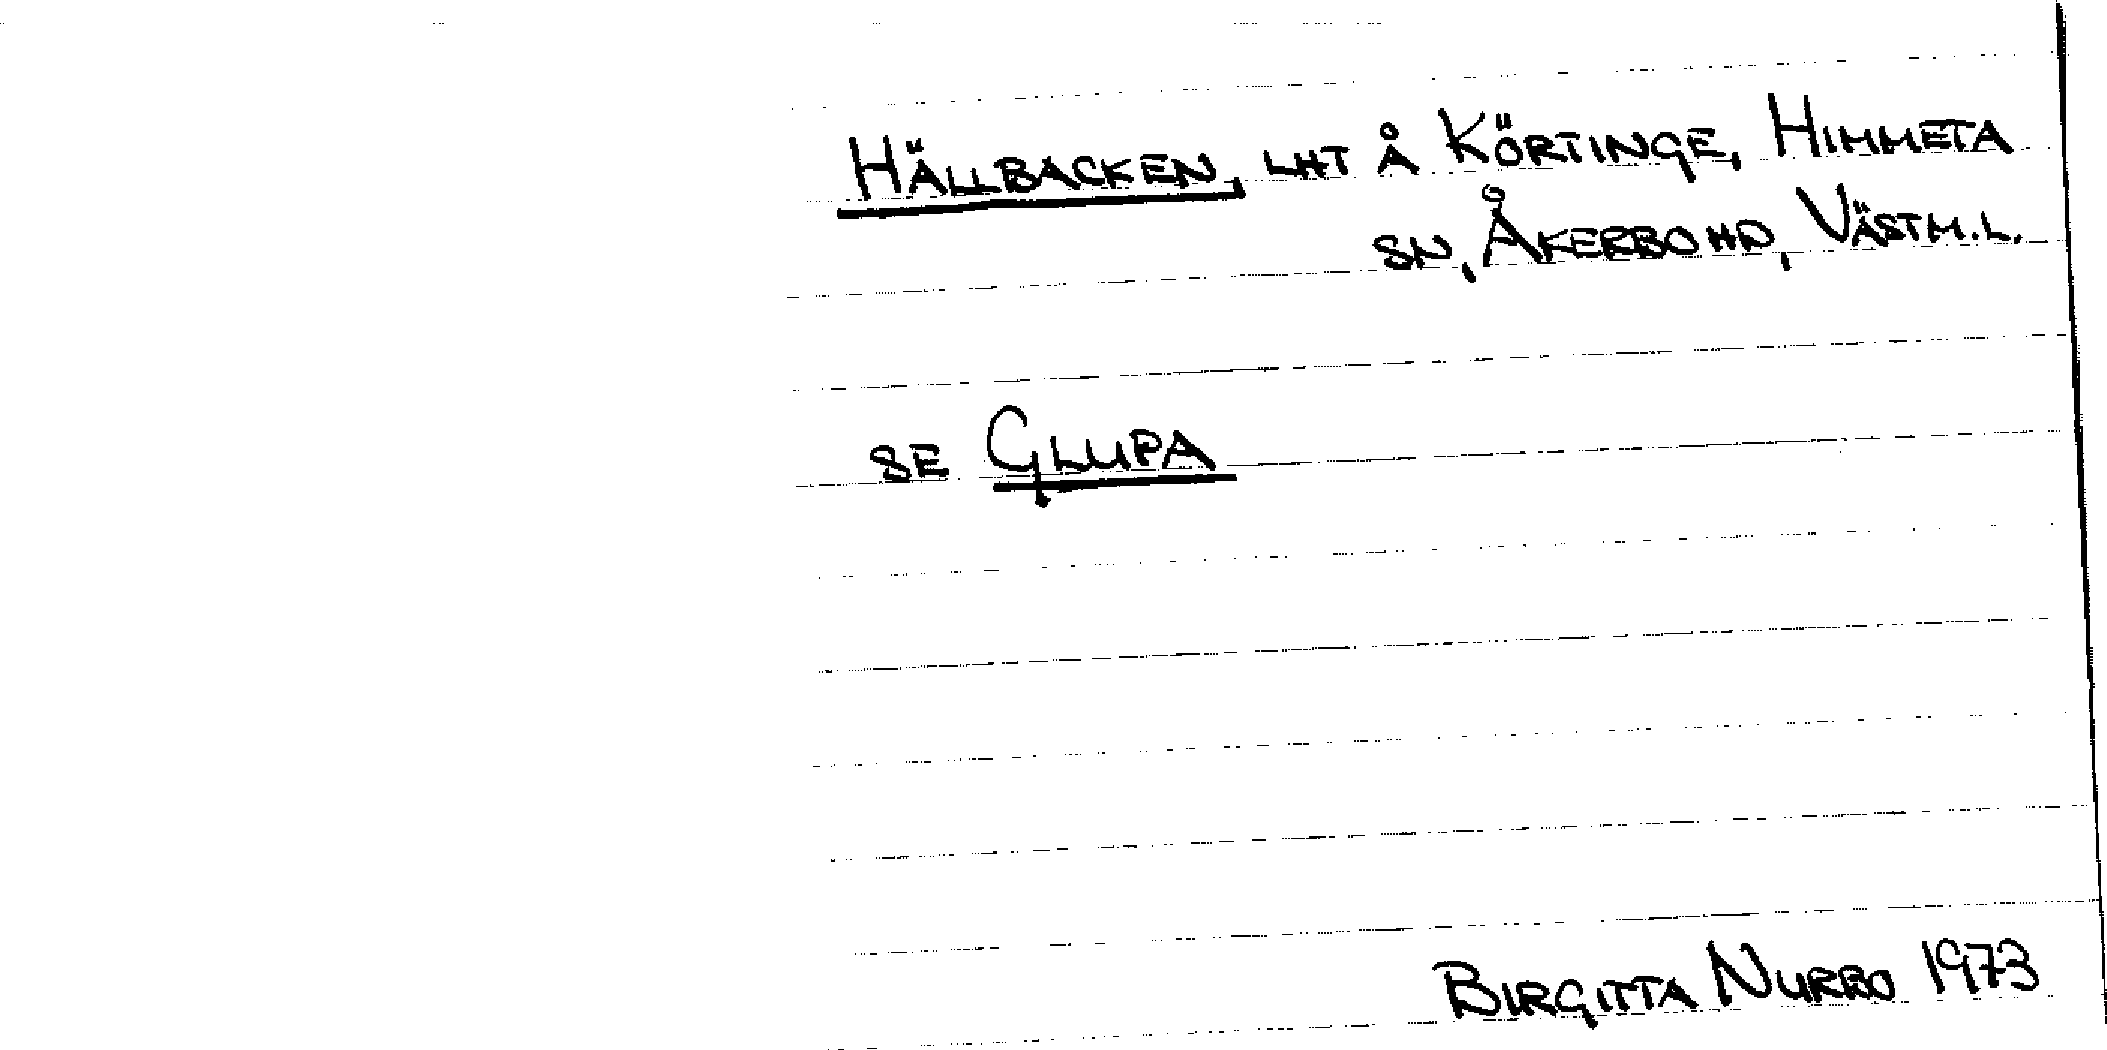 HÄLLBACKEN, LHT Å KÖRTINGE, HIMMETA
SN, ÅKERBO HD, VÄSTM.L.
SE GLUPA
BIRGITTA NURBO 1973